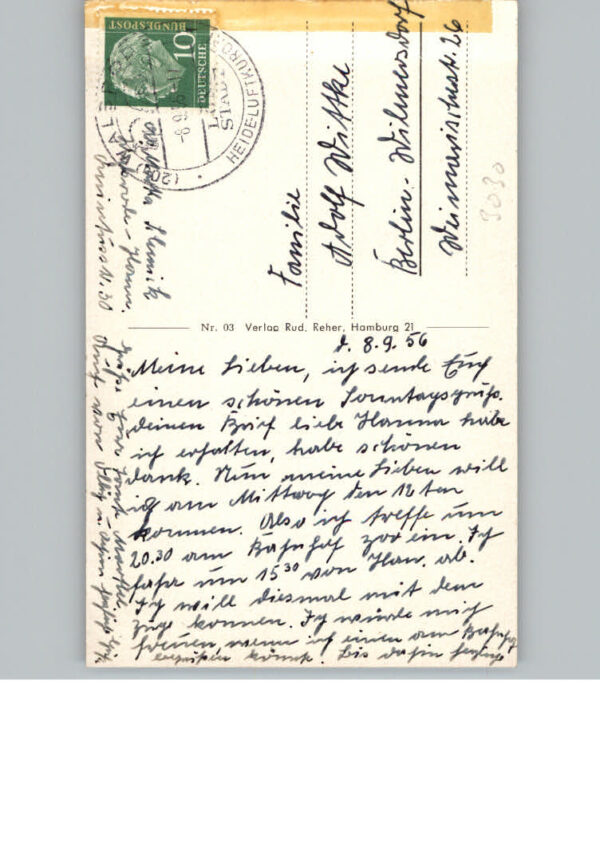 10
DEUTSCHE
BUNDESPOST
HEIDELUFTKURO
(20a)
WAL
Hann.
30
Familie
Adolf Wittke
Berlin-Wilmersdorf
Weimarischestr. 26
3030
Nr. 03 Verlag Rud. Reher, Hamburg 21
d. 8.9.56
Meine Lieben, ich sende Euch
einen schönen Sonntagsgruß.
deinen Brief liebe Hanna habe
ich erhalten, habe schönen
dank. Nun meine Lieben will
ich am Mittwoch den 12ten
kommen. Also ich treffe um
20.30 am Bahnhof Zoo ein. Ich
fahr um 15³⁰ von Han. ab.
Ich will diesmal mit dem
Zuge kommen. Ich würde mich
freuen, wenn ich einen am Bahnhof
begrüßen könnt. bis dahin herzliche
Grüße Eure Tante
Gruß von